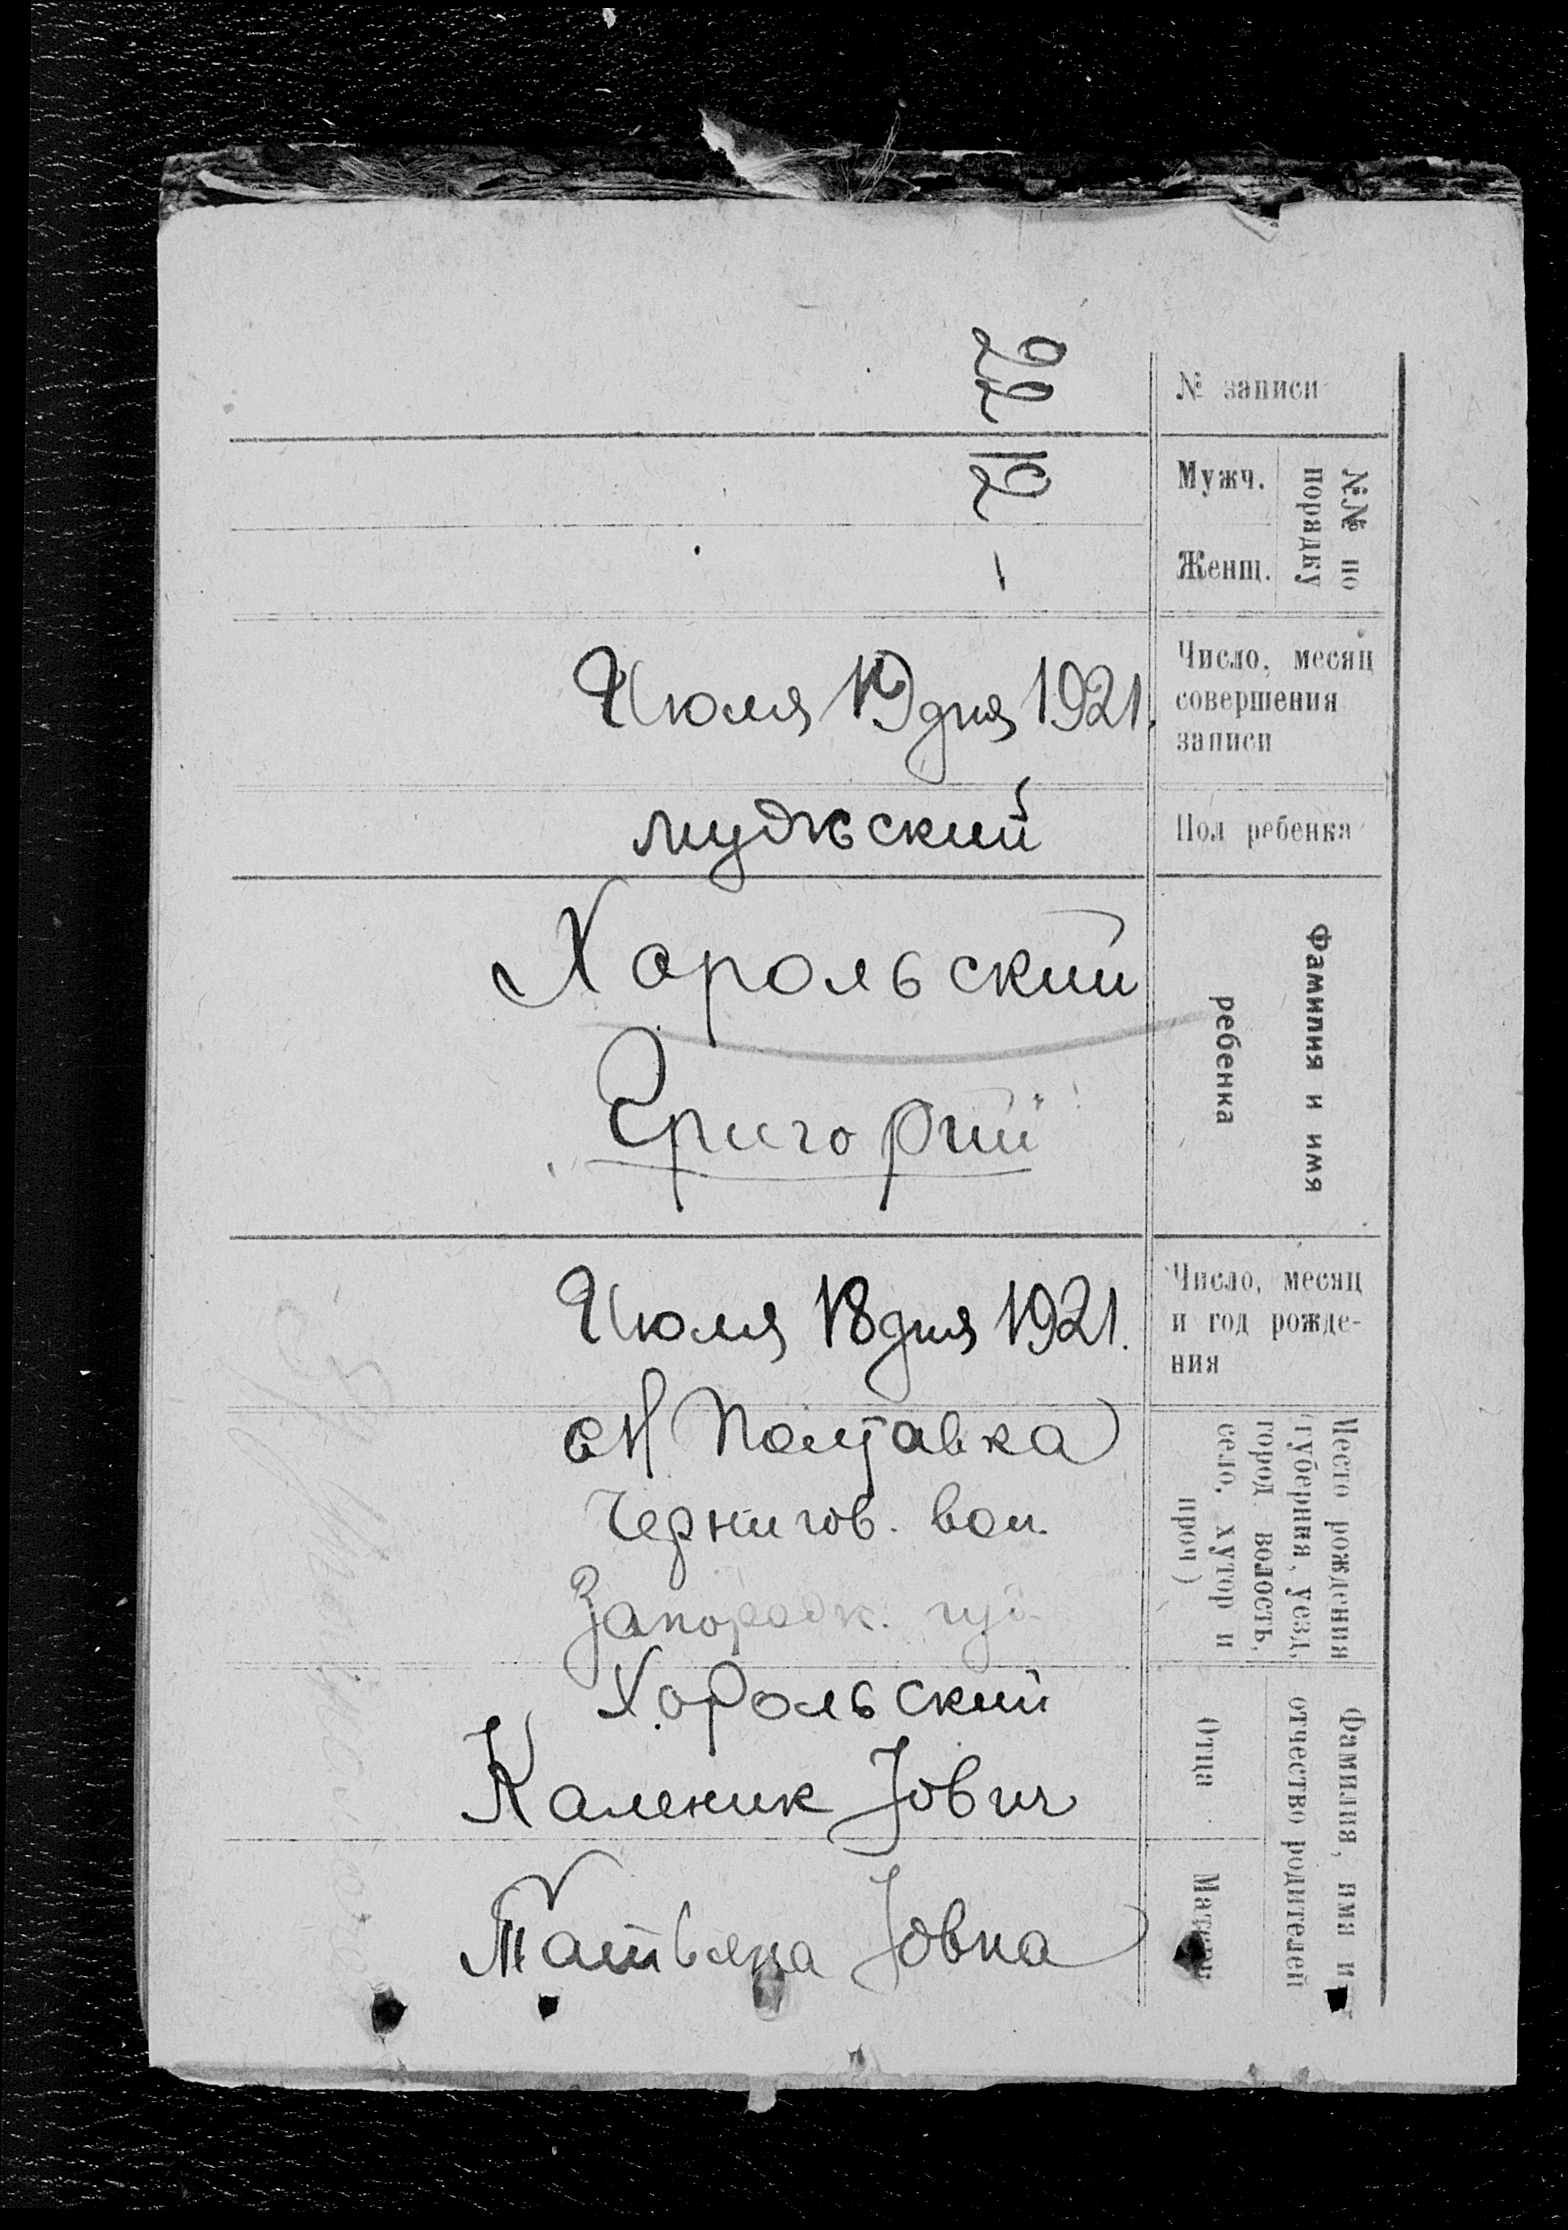 № записи
22
№№ по
порядку
Мужч.
12
Женщ.
Число, месяц
совершения
записи
Июля 19 дня 1921.
Пол ребенка
мужский
Фамилия и имя
ребенка
Хорольский
Григорий
Число, месяц
и год рожде-
ния
Июля 18 дня 1921.
Место рождения
(губерния, уезд,
город волость,
село, хутор и
проч)
с Н Полтавка
Чернигов. вол.
Запорож. губ.
Фамилия, имя и
отчество родителей
Отца
Хорольский
Каленик Јович
Матери
Татьяна Јовна